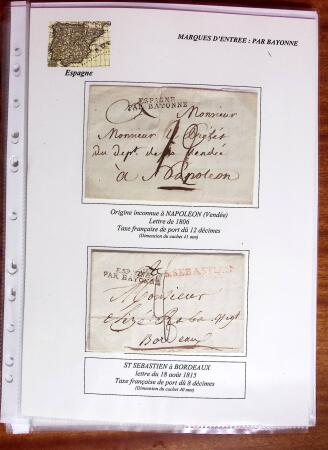 MARQUES D'ENTREE : PAR BAYONNE
Espagne
ESPAGNE
PAR BAYONNE
Monsieur
Monsieur
du dept. de la Vendée
à Napoleon
Origine inconnue à NAPOLEON (Vendée)
Lettre de 1806
Taxe française de port dû 12 décimes
(Dimension du cachet 41 mm)
ESPAGNE
PAR BAYONNE
S.SEBASTIEN
Monsieur
Bordeaux
ST SEBASTIEN à BORDEAUX
lettre du 18 août 1815
Taxe française de port dû 8 décimes
(Dimension du cachet 40 mm)